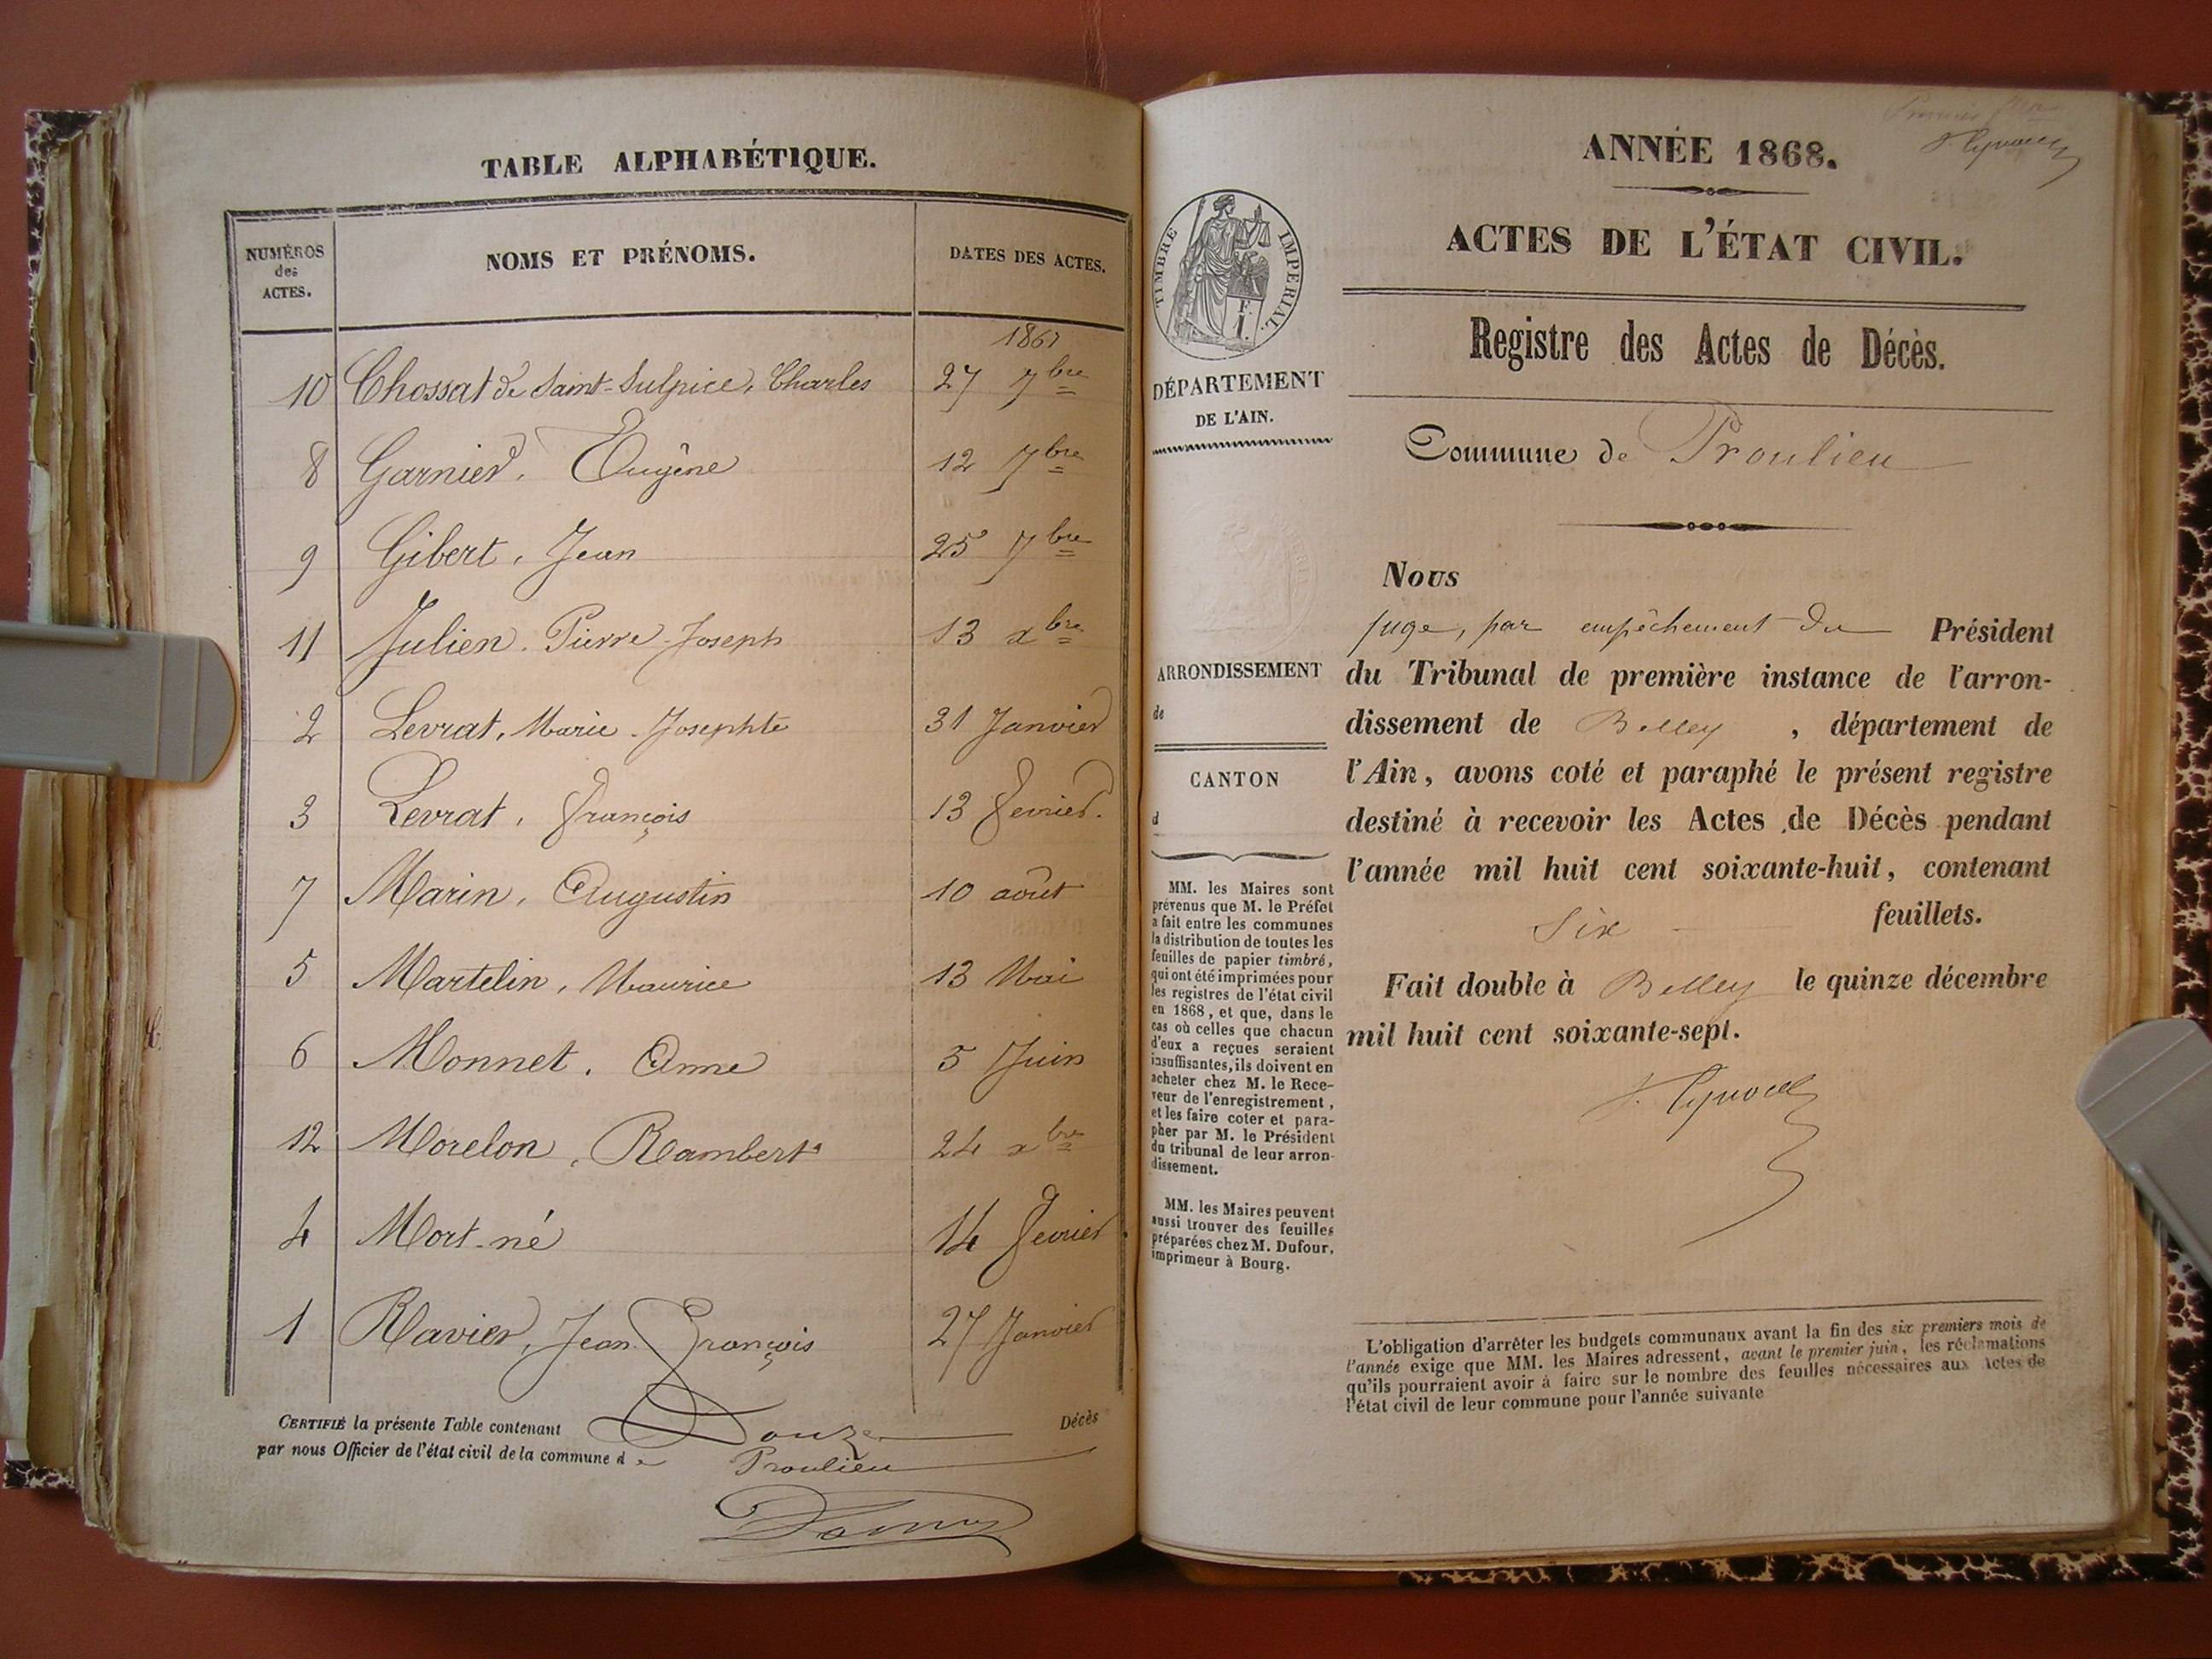 TABLE ALPHABÉTIQUE.
NUMÉROS
des
ACTES.
NOMS ET PRÉNOMS.
DATES DES ACTES.
1867
10 Chossat de Saint-Sulpice, Charles 27 7bre
8 Garnier, Eugène 12 7bre
9 Gibert, Jean 25 7bre
11 Julien, Pierre-Joseph 13 xbre
2 Levrat, Marie-Josephte 31 Janvier
3 Levrat, François 13 fevrier.
7 Marin, Augustin 10 août
5 Martelin, Maurice 13 Mai
6 Monnet, Anne 5 Juin
12 Morelon, Rambert 24 xbre
4 Mort-né 14 fevrier
1 Ravier, Jean François 27 Janvier
CERTIFIÉ la présente Table contenant Douze Décès
par nous Officier de l'état civil de la commune de Proulieu
ANNÉE 1868.
ACTES DE L'ÉTAT CIVIL.
TIMBRE IMPERIAL.
DÉPARTEMENT
DE L'AIN.
ARRONDISSEMENT
de
CANTON
d
MM. les Maires sont
prévenus que M. le Préfet
a fait entre les communes
la distribution de toutes les
feuilles de papier timbré,
qui ont été imprimées pour
les registres de l'état civil
en 1868, et que, dans le
cas où celles que chacun
d'eux a reçues seraient
insuffisantes, ils doivent en
acheter chez M. le Rece-
veur de l'enregistrement,
et les faire coter et para-
pher par M. le Président
du tribunal de leur arron-
dissement.
MM. les Maires peuvent
aussi trouver des feuilles
préparées chez M. Dufour,
imprimeur à Bourg.
Registre des Actes de Décès.
Commune de Proulieu
Nous
juge, par empêchement du Président
du Tribunal de première instance de l'arron-
dissement de Belley, département de
l'Ain, avons coté et paraphé le présent registre
destiné à recevoir les Actes de Décès pendant
l'année mil huit cent soixante-huit, contenant
Six feuillets.
Fait double à Belley le quinze décembre
mil huit cent soixante-sept.
L'obligation d'arrêter les budgets communaux avant la fin des six premiers mois de
l'année exige que MM. les Maires adressent, avant le premier juin, les réclamations
qu'ils pourraient avoir à faire sur le nombre des feuilles nécessaires aux Actes de
l'état civil de leur commune pour l'année suivante